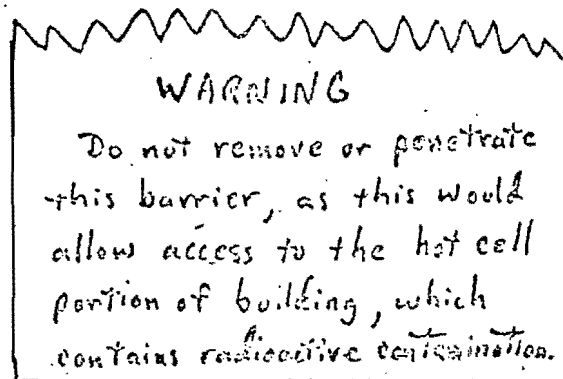 WARNING
Do not remove or penetrate
this barrier, as this would
allow access to the hot cell
portion of building, which
contains radioactive contamination.